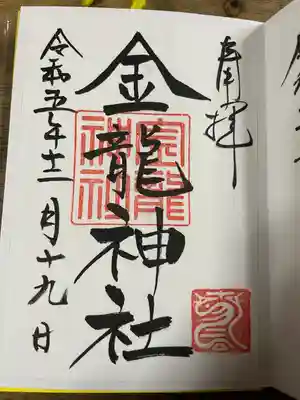 奉拝
金龍神社
金龍
神社
令和五年十二月十九日